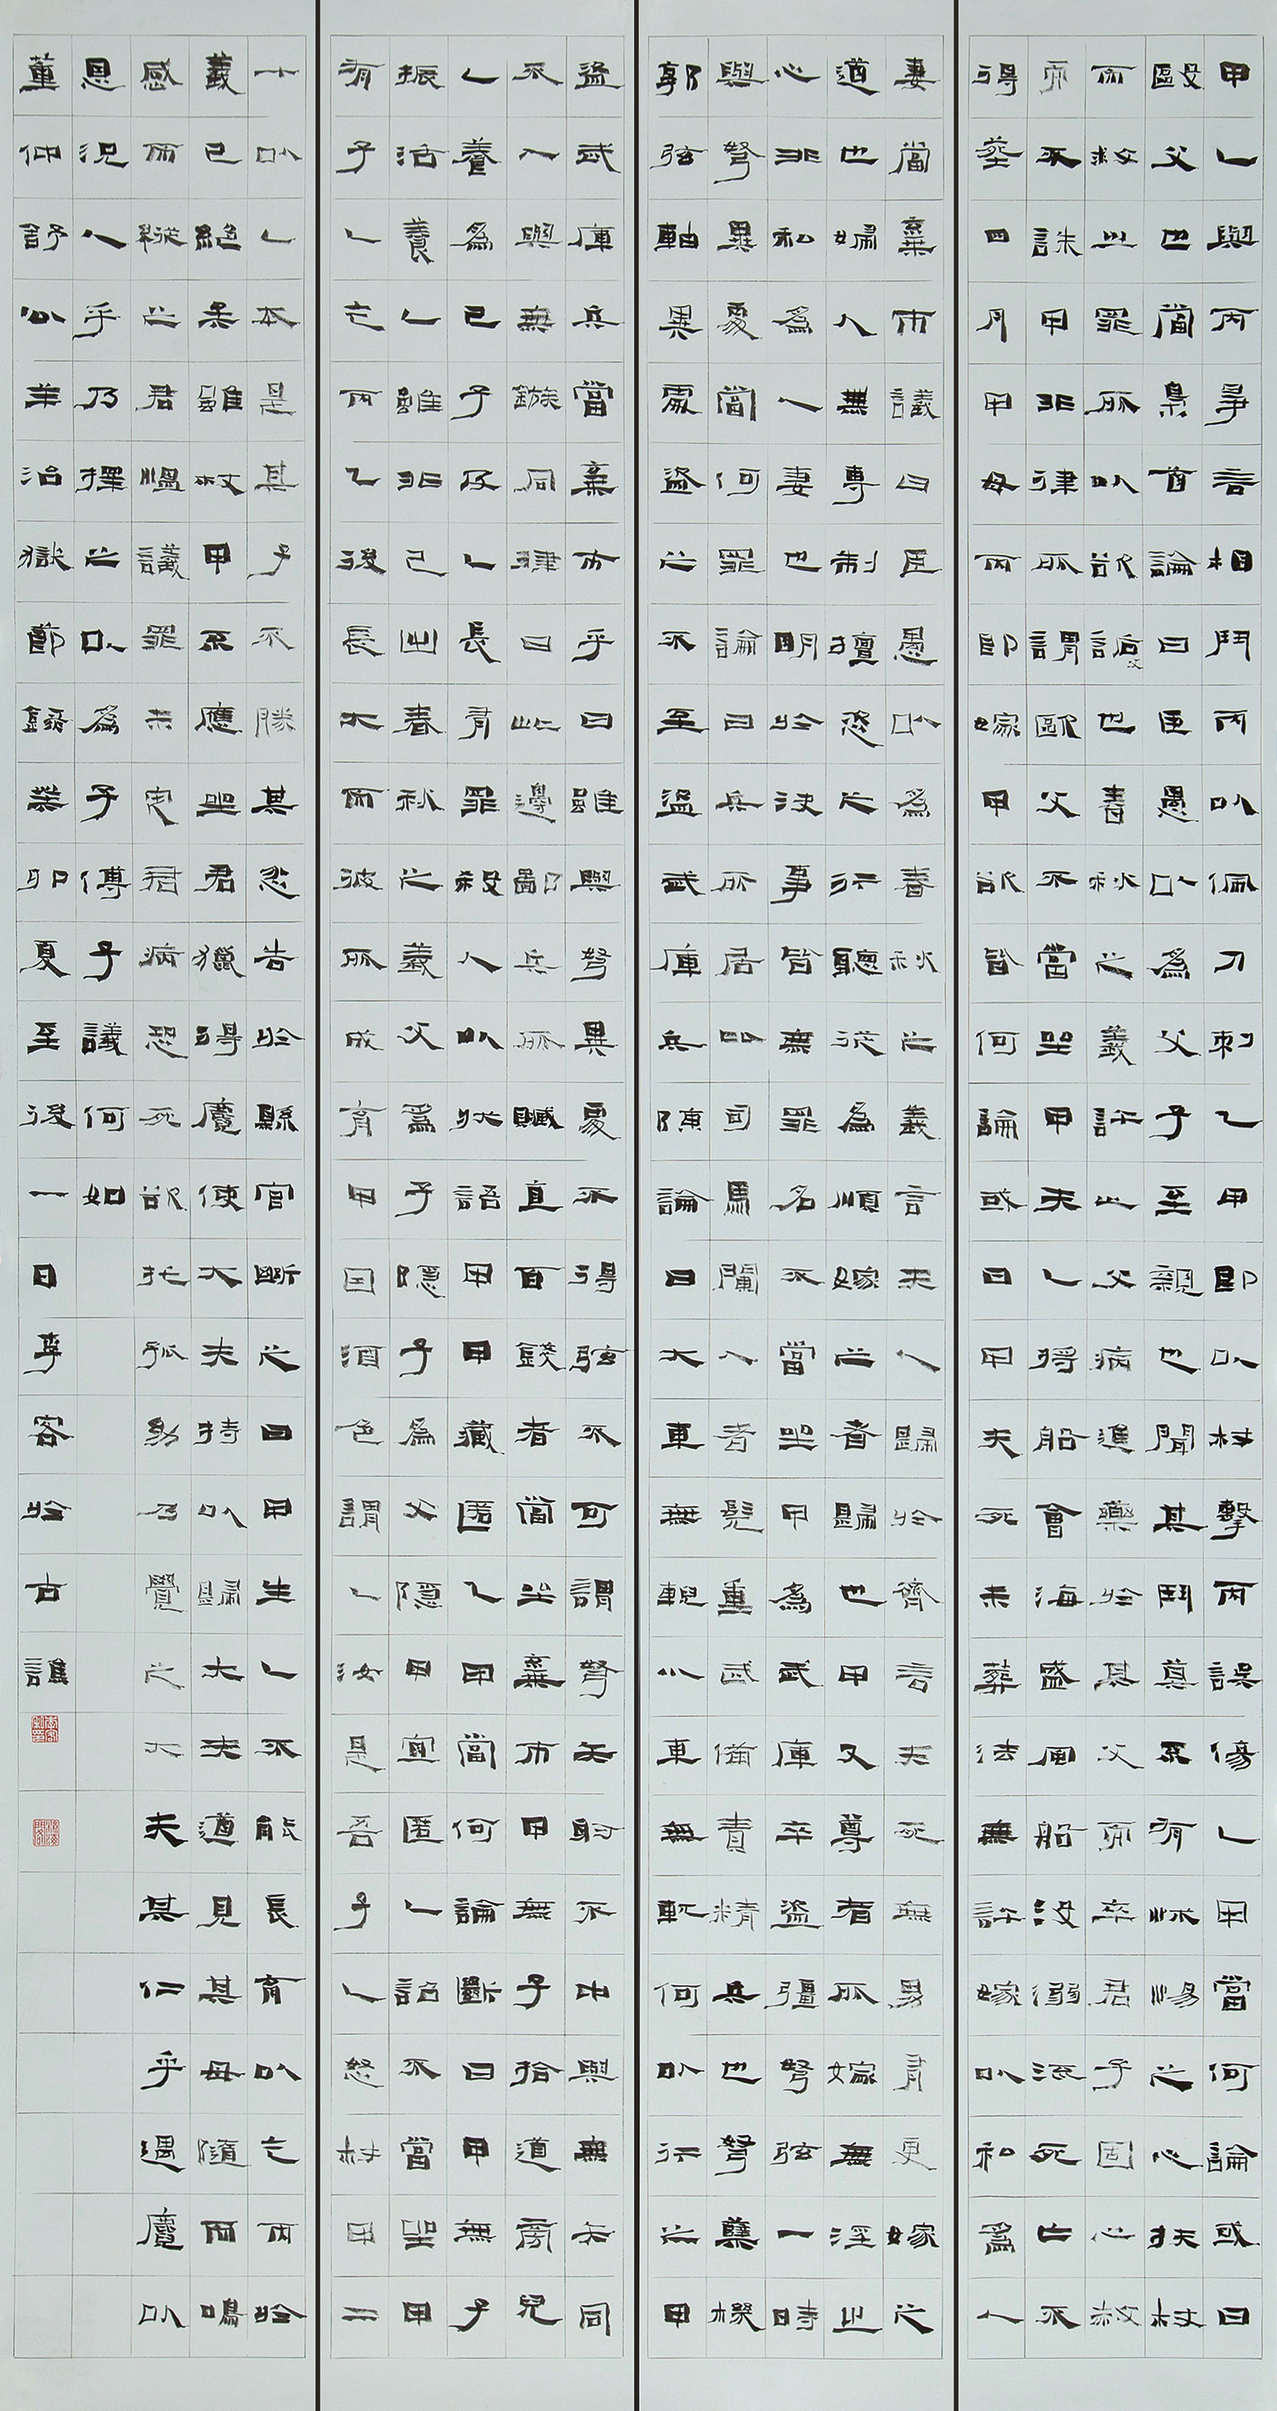 甲乙與丙爭言相鬥丙以佩刀刺乙甲即以杖擊丙誤傷乙甲當何論或曰
毆父也當梟首論曰臣愚以為父子至親也聞其鬥莫不有怵惕之心扶杖
而救之罪所以欲詬父也春秋之義許止父病進藥於其父而卒君子固心赦
而不誅甲非律所謂毆父不當坐甲夫乙將船會海盛風船沒溺流死亡不
得葬四月甲母丙即嫁甲欲皆何論或曰甲夫死未葬法無許嫁以私為人
妻當棄市議曰臣愚以為春秋之義言夫人歸於齊言夫死無男有更嫁之
道也婦人無專制擅恣之行聽從為順嫁之者歸也甲又尊者所嫁無淫之
心非私為人妻也明於決事皆無罪名不當坐甲為武庫卒盜彊弩弦一時
與弩異處當何罪論曰兵所居比司馬闌入者髡重武備責精兵也弩蘗機
郭弦軸異處盜之不至盜武庫兵陳論曰大車無輗小車無軏何以行之甲
盜武庫兵當棄市乎曰雖與弩異處不得弦不可謂弩矢射不中與無矢同
不入與無鏃同律曰此邊鄙兵所贓直百錢者當坐棄市甲無子拾道旁兒
乙養為己子及乙長有罪殺人以狀語甲甲藏匿乙甲當何論斷曰甲無子
振活養乙雖非己出春秋之義父為子隱子為父隱甲宜匿乙詔不當坐甲
有子乙亡丙乙後長大而彼所成育甲因酒色謂乙汝是吾子乙怒杖甲二
十以乙本是其子不勝其忿告於縣官斷之曰甲生乙不能長育以亡丙於
義已絕矣雖杖甲不應坐君獵得麑使大夫持以歸大夫道見其母隨而鳴
感而縱之君慍議罪未定君病恐死欲托孤幼乃覺之大夫其仁乎遇麑以
恩況人乎乃擇之以為子傅子議何如
董仲舒公羊治獄節錄癸卯夏至後一日李容於古譙